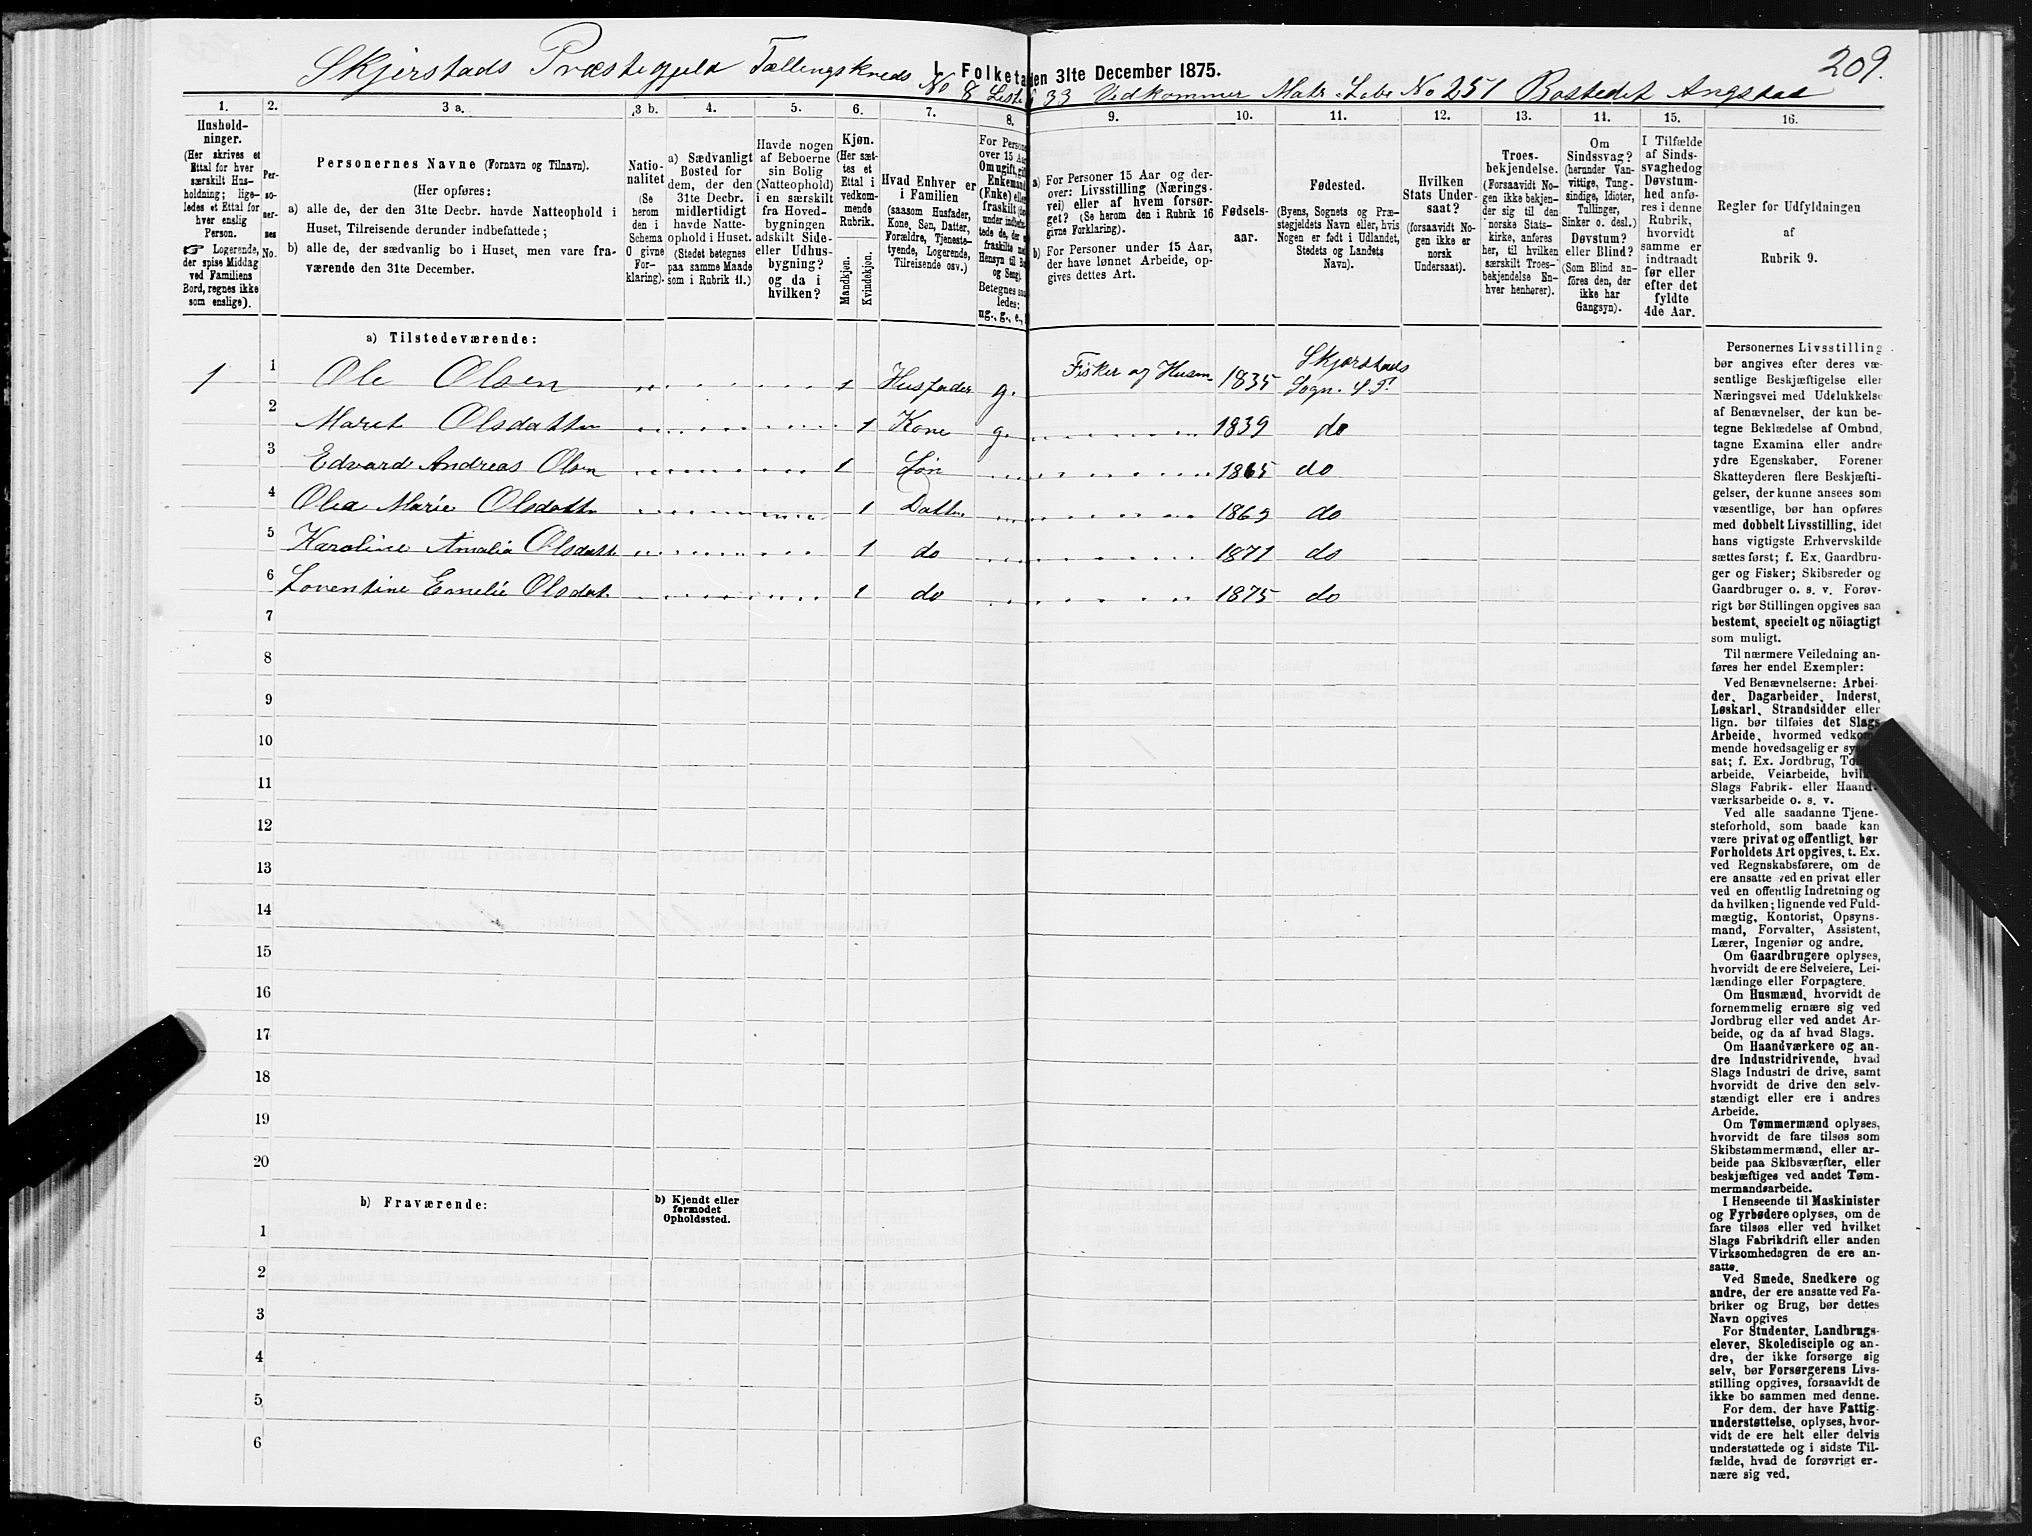 Skjerstads Præstegjeld Tællingskreds
I. Folketa
den 31te December 1875.
209.
No 8 Liste
33 Vedkommer Matr. Løbe No 251 Bostedet Angstad
1. 2. 3 a. 3 b. 4. 5. 6. 7. 8. 9. 10. 11. 12. 13. 14. 15. 16.
Hushold-
ninger.
(Her skrives et
Ettal for hver
særskilt Hus-
holdning; lige-
ledes et Ettal for
hver enslig
Person.
☞ Logerende,
der spise Middag
ved Familiens
Bord, regnes ikke
som enslige).
Per-
so-
ner-
nes
No.
Personernes Navne (Fornavn og Tilnavn).
(Her opføres:
a) alle de, der den 31te Decbr. havde Natteophold i
Huset, Tilreisende derunder indbefattede;
b) alle de, der sædvanlig bo i Huset, men vare fra-
værende den 31te December.
Natio-
nalitet
(Se
herom
den i
Schema
O givne
For-
klaring).
a) Sædvanligt
Bosted for
dem, der den
31te Decbr.
midlertidigt
havde Natte-
ophold i Huset.
(Stedet betegnes
paa samme Maade
som i Rubrik 11.)
Havde nogen
af Beboerne
sin Bolig
(Natteophold)
i en særskilt
fra Hoved-
bygningen
adskilt Side-
eller Udhus-
bygning?
og da i
hvilken?
Kjøn.
(Her sæt-
tes et
Ettal i
vedkom-
mende
Rubrik.
Mandkjøn.
Kvindekjøn.
Hvad Enhver er
i Familien
(saasom Husfader,
Kone, Søn, Datter,
Forældre, Tjeneste-
tyende, Logerende,
Tilreisende osv.)
For Persone
over 15 Aar
Om ugift, gift
Enkemand
(Enke) elle
fraskilt
under indbefat-
tede de, der
fraskilte
Hensyn til B
og Seng).
Betegnes saa
ledes:
ug., g., e.,
a) For Personer 15 Aar og der-
over: Livsstilling (Nærings-
vei) eller af hvem forsør-
get? (Se herom den i Rubrik 16
givne Forklaring).
b) For Personer under 15 Aar,
der have lønnet Arbeide, op-
gives dettes Art.
Fødsels-
aar.
Fødested.
(Byens, Sognets og Præ-
stegjeldets Navn eller, hvis
Nogen er født i Udlandet,
Stedets og Landets
Navn).
Hvilken
Stats Under-
saat?
(forsaavidt No-
gen ikke er
norsk
Undersaat).
Troes-
bekjendelse.
(Forsaavidt No-
gen ikke bekjen-
der sig til den
norske Stats-
kirke, anføres
her, til hvilken
særskilt Troes-
bekjendelse En-
hver henhører).
Om
Sindssvag?
(herunder Van-
vittige, Tung-
sindige, Idioter,
Tullinger,
Sinker o. desl.)
Døvstum?
eller Blind?
(Som Blind an-
føres den, der
ikke har
Gangsyn).
I Tilfælde
af Sinds-
svaghedog
Døvstum-
hed anfø-
res i denne
Rubrik,
hvorvidt
samme er
indtraadt
før eller
efter det
fyldte
4de Aar.
Regler for Udfyldningen
af
Rubrik 9.
a) Tilstedeværende:
1 1 Ole Olsen 1 Husfader g. Fisker og Husm 1835 Skjerstads
Sogn
2 Maret Olsdatter 1 Kone g. 1839 do
3 Edvard Andreas Olsen 1 Søn 1865 do
4 Olea Marie Olsdatter 1 Datter 1869 do
5 Karoline Amalia Olsdatt 1 do 1871 do
6 Lorentine Emelie Olsdat. 1 do 1875 do
7
8
9
10
11
12
13
14
15
16
17
18
19
20
b) Fraværende:
b) Kjendt eller
formodet
Opholdssted.
1
2
3
4
5
6
Personernes Livsstilling
bør angives efter deres væ-
sentlige Beskjæftigelse eller
Næringsvei med Udelukkelse
af Benævnelser, der kun be-
tegne Beklædelse af Ombud,
tagne Examina eller andre
ydre Egenskaber. Forener
Skatteyderen flere Beskjæfti-
gelser, der kunne ansees som
væsentlige, bør han opføres
med dobbelt Livsstilling, idet
hans vigtigste Erhvervskilde
sættes først; f. Ex. Gaardbru-
ger og Fisker; Skibsreder og
Gaardbruger o. s. v. Forøv-
rigt bør Stillingen opgives saa
bestemt, specielt og nöiagtigt
som muligt.
Til nærmere Veiledning an-
føres her endel Exempler:
Ved Benævnelserne: Arbei-
der, Dagarbeider, Inderst,
Løskarl, Strandsidder eller
lign. bør tilføies det Slags
Arbeide, hvormed vedkom-
mende hovedsagelig er
sat; f. Ex. Jordbrug,
arbeide, Veiarbeide,
Slags Fabrik- eller Haand-
værksarbeide o. s. v.
Ved alle saadanne Tjene-
steforhold, som baade kan
være privat og offentligt, bør
Forholdets Art opgives, t. Ex.
ved Regnskabsførere, om de
ere ansatte ved en privat eller
ved en offentlig Indretning og
da hvilken; lignende ved Fuld-
mægtig, Kontorist, Opsyns-
mand, Forvalter, Assistent,
Lærer, Ingeniør og andre.
Om Gaardbrugere oplyses,
hvorvidt de ere Selveiere, Lei-
lændinge eller Forpagtere.
Om Husmænd, hvorvidt de
fornemmelig ernære sig ved
Jordbrug eller ved andet Ar-
beide, og da af hvad Slags.
Om Haandværkere og an-
dre Industridrivende, hvad
Slags Industri de drive, samt
hvorvidt de drive den selv-
stændigt eller ere i andres
Arbeide.
Om Tømmermænd oplyses,
hvorvidt de fare tilsøs som
Skibstømmermænd, eller ar-
beide paa Skibsværfter, eller
beskjæftiges ved andet Tøm-
mermandsarbeide.
I Henseende til Maskinister
og Fyrbødere oplyses, om de
fare tilsøs eller ved hvilket
Slags Fabrikdrift eller anden
Virksomhedsgren de ere an-
satte.
Ved Smede, Snedkere og
andre, der ere ansatte ved Fa-
briker og Brug, bør dettes
Navn opgives
For Studenter, Landbrugs-
elever, Skoledisciple og an-
dre, der ikke forsørge sig
selv, bør Forsørgerens Livs-
stilling opgives, forsaavidt de
ikke bo sammen med denne.
For dem, der have Fattig-
understøttelse, oplyses, hvor-
vidt de ere helt eller delvis
understøttede og i sidste Til-
fælde, hvad de forøvrigt er-
nære sig ved.